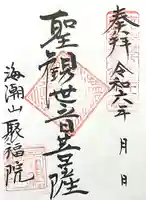 奉拝
令和六年 月 日
聖観世音菩薩
海潮山
聚福院